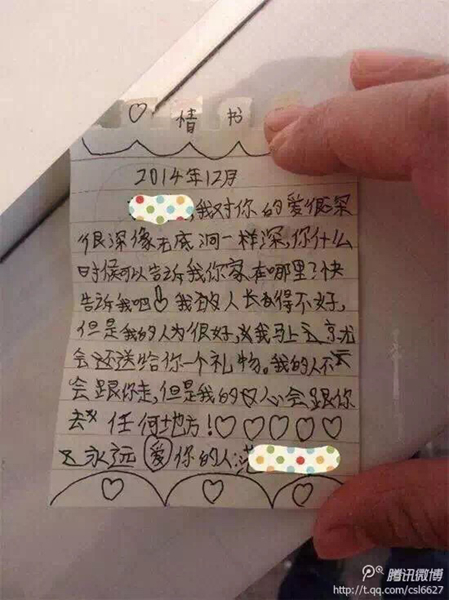 ♡ 情书
2014年12月
,我对你的爱很深
很深像无底洞一样深,你什么
时候可以告诉我你家在哪里?快
告诉我吧 我 人长 得不好,
但是我的人为很好, 我马上 就
会 送给你一个礼物。我的人不
会跟你走,但是我的 心会跟你
去 任何地方!♡♡♡♡♡
永远爱你的人:
♡ ♡ ♡
腾讯微博
http://t.qq.com/csl6627